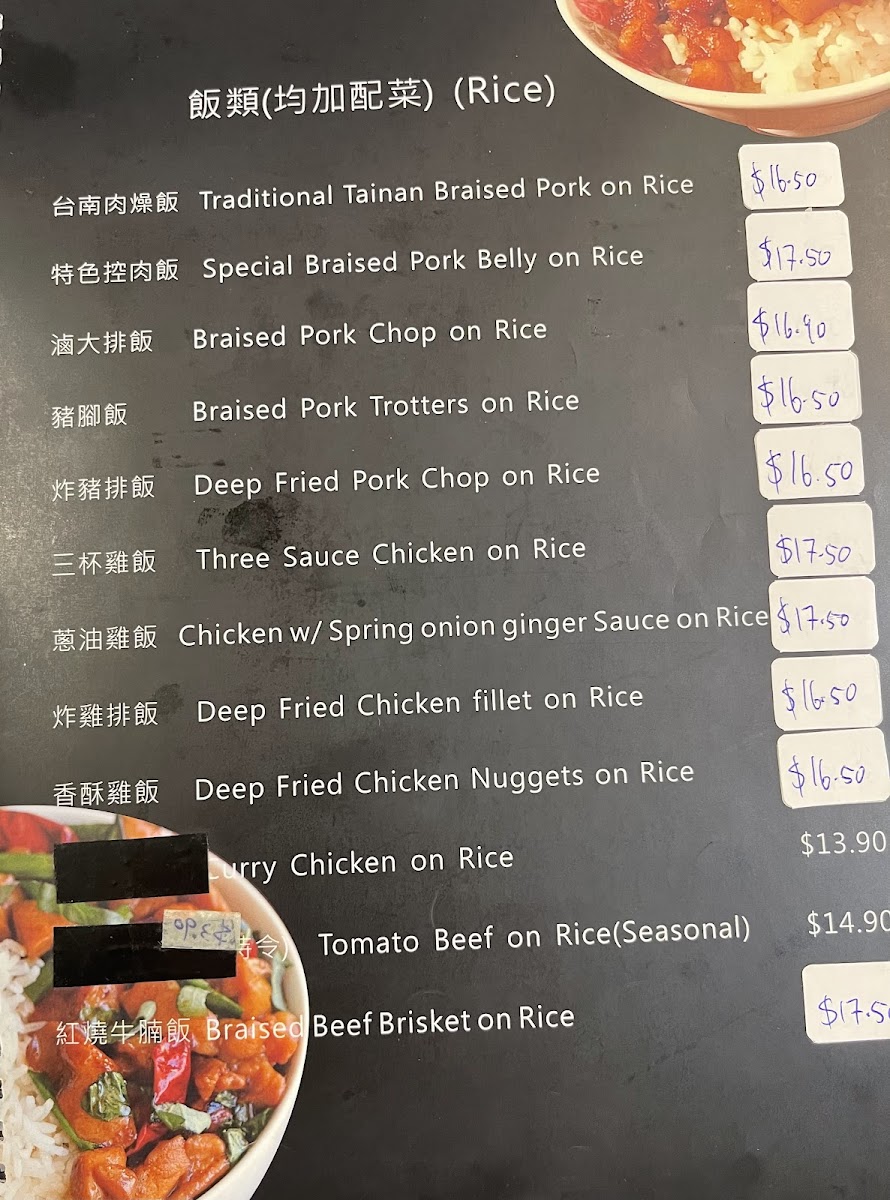 飯類(均加配菜) (Rice)
台南肉燥飯 Traditional Tainan Braised Pork on Rice $16.50
特色控肉飯 Special Braised Pork Belly on Rice $17.50
滷大排飯 Braised Pork Chop on Rice $16.90
豬腳飯 Braised Pork Trotters on Rice $16.50
炸豬排飯 Deep Fried Pork Chop on Rice $16.50
三杯雞飯 Three Sauce Chicken on Rice $17.50
蔥油雞飯 Chicken w/ Spring onion ginger Sauce on Rice $17.50
炸雞排飯 Deep Fried Chicken fillet on Rice $16.50
香酥雞飯 Deep Fried Chicken Nuggets on Rice $16.50
Curry Chicken on Rice $13.90
時令) Tomato Beef on Rice(Seasonal) $14.90
$3.90
紅燒牛腩飯 Braised Beef Brisket on Rice $17.50